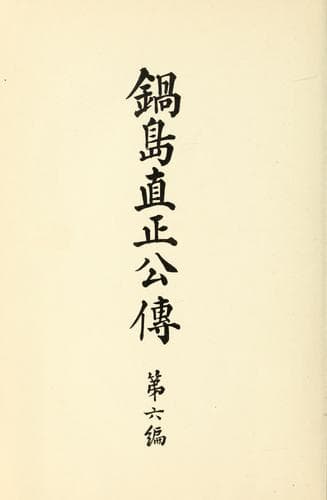 鍋島直正公傳
第六編